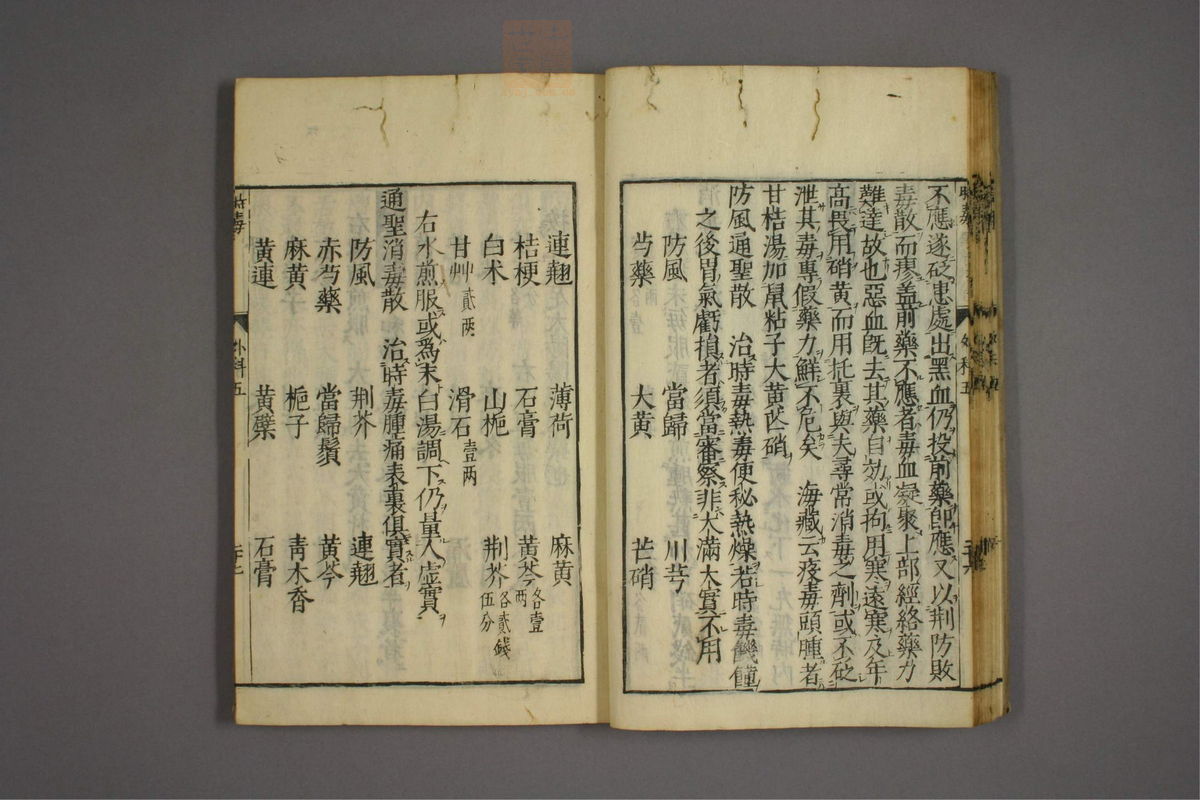 不應遂砭患處出黑血仍投前藥卽應又以荆防敗
毒散而瘳盖前藥不應者毒血凝聚上部經絡藥力
難達故也惡血旣去其藥自効或拘用寒遠寒及年
高畏用硝黄而用托裏與夫尋常消毒之劑或不砭
泄其毒專假藥力鮮不危矣　海藏云疫毒頭腫者
甘桔湯加鼠粘子大黄芒硝
防風通聖散　治時毒熱毒便秘熱燥若時毒饑饉
之後胃氣虧損者須當審察非大滿大實不用
防風　當歸　川芎
芍藥　大黄　芒硝
連翹　薄荷　麻黄
桔梗　石膏　黄芩各壹两
白术　山梔　荆芥各貳錢伍分
甘艸貳两　滑石壹两
右水煎服或為末白湯調下仍量人虛實
通聖消毒散　治時毒腫痛表裏俱實者
防風　荆芥　連翹
赤芍藥　當歸鬚　黄芩
麻黄　梔子　青木香
黄連　黄蘗　石膏
時毒　外科五